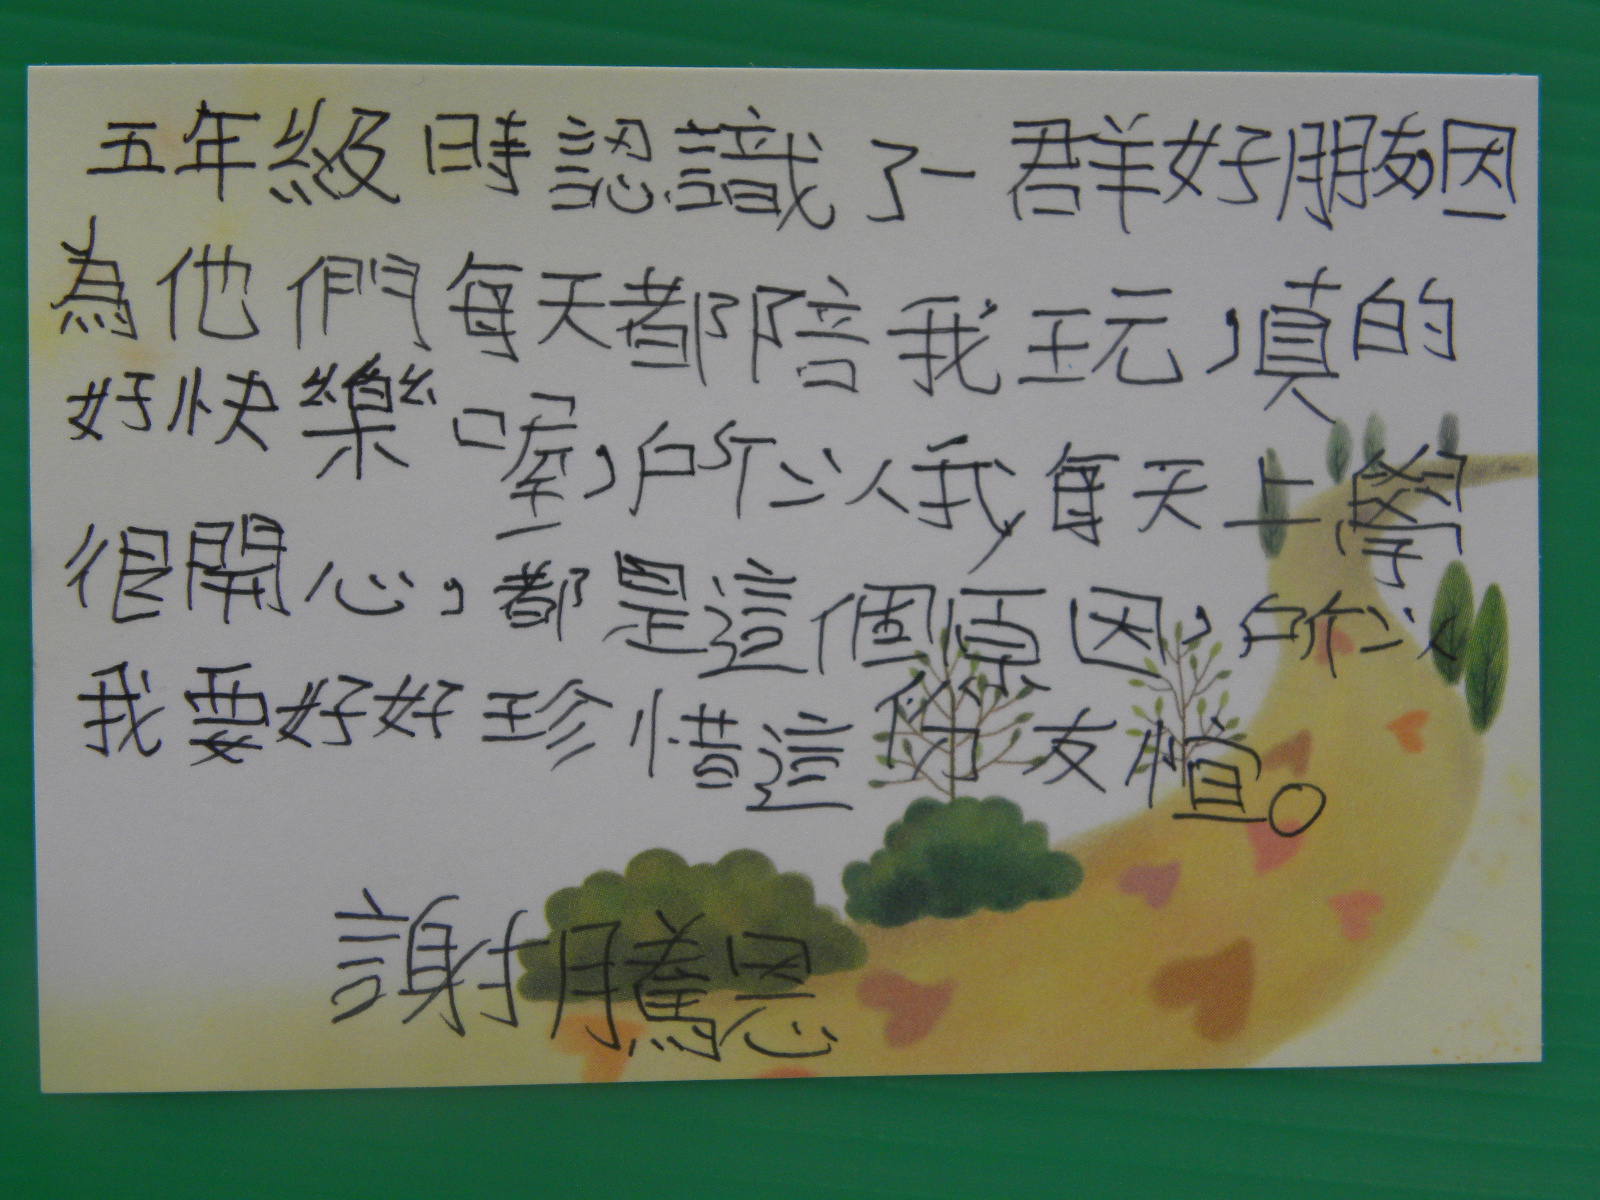 五年級時認識了一群好朋友,因
為他們每天都陪我玩,真的
好快樂喔,所以我每天上學
很開心,都是這個原因,所以
我要好好珍惜這份友誼。
謝騰恩